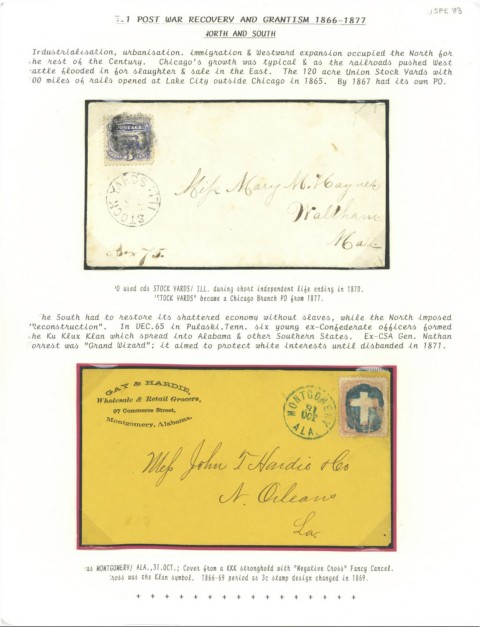 JSPE 93
.1 POST WAR RECOVERY AND GRANTISM 1866-1877
NORTH AND SOUTH
Industrialisation, urbanisation, immigration & Westward expansion occupied the North for
he rest of the Century. Chicago's growth was typical & as the railroads pushed West
attle flooded in for slaughter & sale in the East. The 120 acre Union Stock Yards with
00 miles of rails opened at Lake City outside Chicago in 1865. By 1867 had its own PO.
POSTAGE
STOCK YARDS ILL
Miss Mary M. Haynes
Waltham
Mass
Box 75.
'O used cds STOCK YARDS/ ILL. during short independent life ending in 1870.
"STOCK YARDS" became a Chicago Branch PO from 1877.
he South had to restore its shattered economy without slaves, while the North imposed
"Reconstruction". In DEC.65 in Pulaski,Tenn. six young ex-Confederate officers formed
he Ku Klux Klan which spread into Alabama & other Southern States. Ex-CSA Gen. Nathan
orrest was "Grand Wizard"; it aimed to protect white interests until disbanded in 1871.
GAY & HARDIE,
Wholesale & Retail Grocers,
97 Commerce Street,
Montgomery, Alabama.
MONTGOMERY
31
OCT
ALA.
Mess John T Hardie & Co
N. Orleans
La
us MONTGOMERY/ ALA.,31.OCT.; Cover from a KKK stronghold with "Negative Cross" Fancy Cancel.
ross was the Klan symbol. 1866-69 period as 3c stamp design changed in 1869.
+ + + + + + + + + + + + + + + +